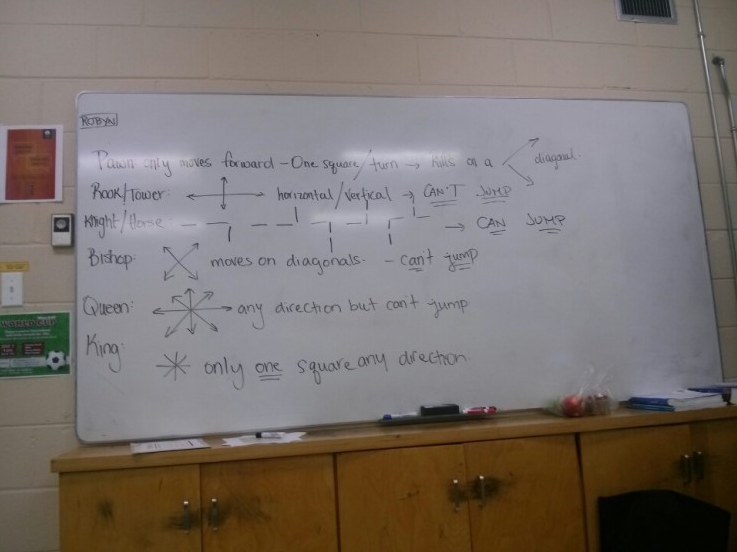 ROBYN
Pawn only moves forward - One square/turn → Kills on a diagonal.
Rook/Tower: horizontal/vertical → CAN'T JUMP
Knight/Horse: → CAN JUMP
Bishop: moves on diagonals. - can't jump
Queen: any direction but can't jump
King:
only one square any direction
WORLD CUP